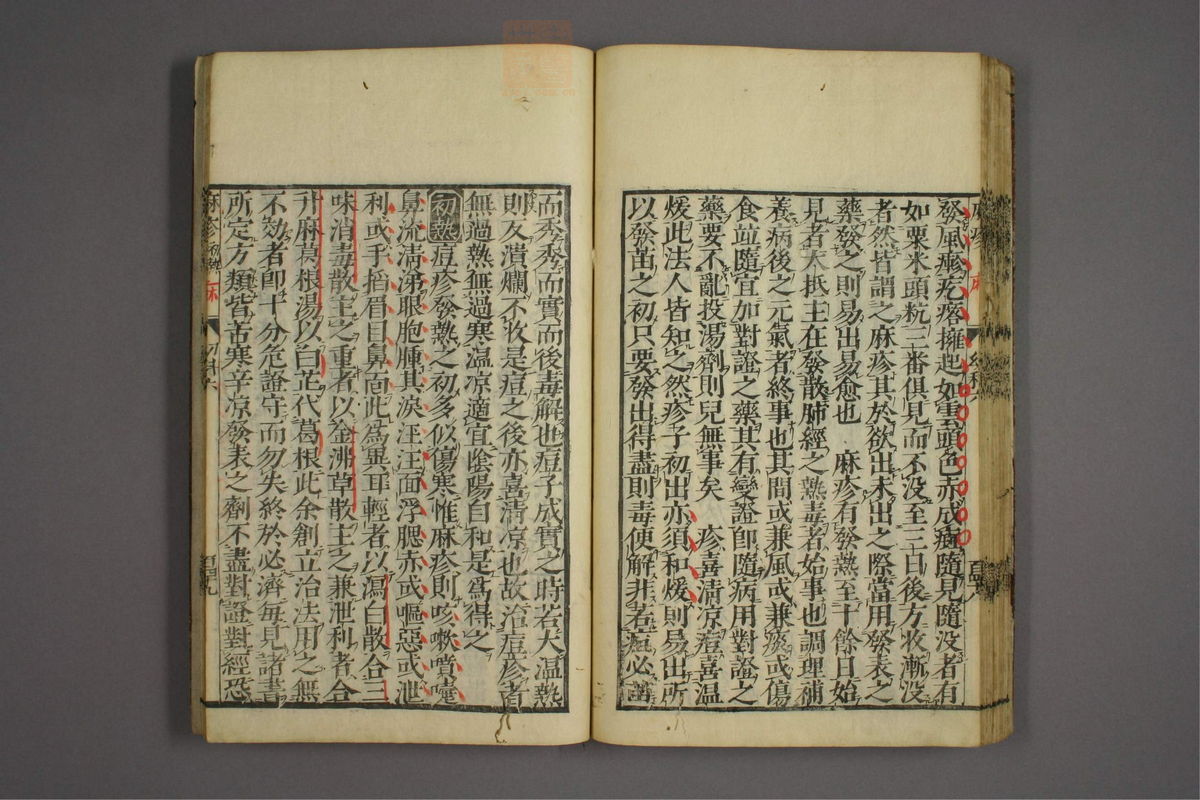 發風癮疙瘩擁起如雲頭色赤成㾦隨見隨没者有
如粟米頭粃三番俱見而不没至三日後方收漸没
者然皆謂之麻疹其於欲出未出之際當用發表之
藥發之則易出易愈也　麻疹有發熱至十餘日始
見者大抵主在發散肺經之熱毒者始事也調理補
養病後之元氣者終事也其間或兼風或兼痰或傷
食竝隨宜加對證之藥其有變證卽隨病用對證之
藥要不亂投湯劑則兒無事矣　疹喜清凉痘喜温
煖此法人皆知之然疹子初出亦須和煖則易出所
以發苗之初只要發出得盡則毒便解非若痘必苗
而秀秀而實而後毒解也痘子成實之時若大温熱
則反潰爛不收是痘之後亦喜清凉也故治痘疹者
無過熱無過寒温凉適宜陰陽自和是爲得之
初熱 痘疹發熱之初多似傷寒惟麻疹則咳嗽嚏
鼻流清涕眼胞腫其淚汪汪面浮腮赤或嘔惡或泄
利或手搯眉目鼻面此爲異耳輕者以瀉白散合三
味消毒散主之重者以金沸草散主之兼泄利者合
升麻葛根湯以白芷代葛根此余創立治法用之無
不効者卽十分危證守而勿失終於必濟每見諸書
所定方類皆苦寒辛凉發表之劑不盡對證對經恐
麻疹 初熱
百四九